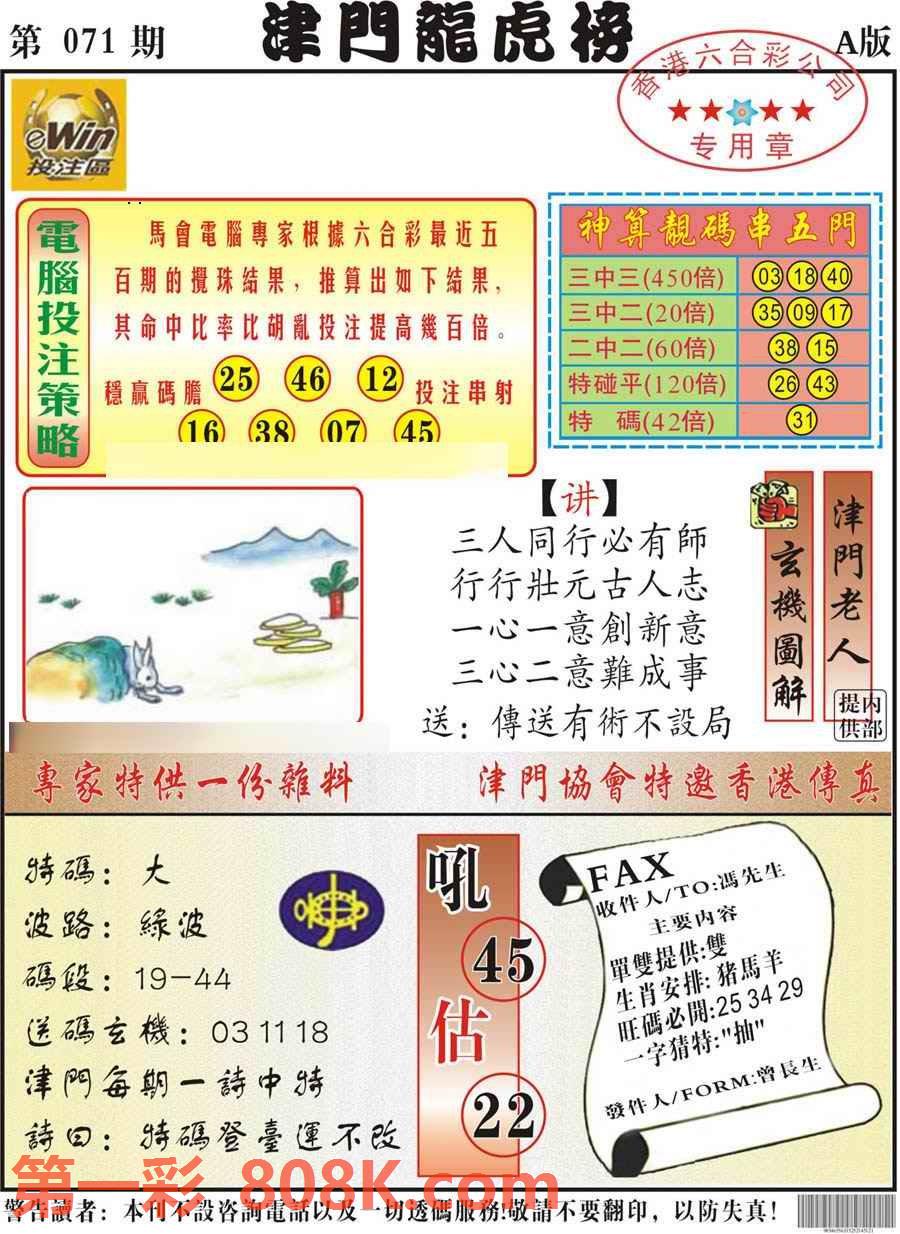 第 071 期
津門龍虎榜
A版
香港六合彩公司
专用章
eWin
投注區
電腦投注策略
馬會電腦專家根據六合彩最近五
百期的攪珠結果，推算出如下結果，
其命中比率比胡亂投注提高幾百倍。
穩贏碼膽 25 46 12 投注串射
16 38 07 45
神算靚碼串五門
三中三(450倍) 03 18 40
三中二(20倍) 35 09 17
二中二(60倍) 38 15
特碰平(120倍) 26 43
特 碼(42倍) 31
【讲】
三人同行必有師
行行壯元古人志
一心一意創新意
三心二意難成事
送：傳送有術不設局
玄機圖解
津門老人
提供
内部
專家特供一份雜料
津門協會特邀香港傳真
特碼：大
波路：綠波
碼段：19-44
送碼玄機：03 11 18
津門每期一詩中特
詩曰：特碼登臺運不改
吼
45
估
22
FAX
收件人/TO:馮先生
主要内容
單雙提供:雙
生肖安排:猪馬羊
旺碼必開:25 34 29
一字猜特:"抽"
發件人/FORM:曾長生
第一彩 808K.com
警告讀者：本刊不設咨詢電話以及一切透碼服務!敬請不要翻印，以防失真!